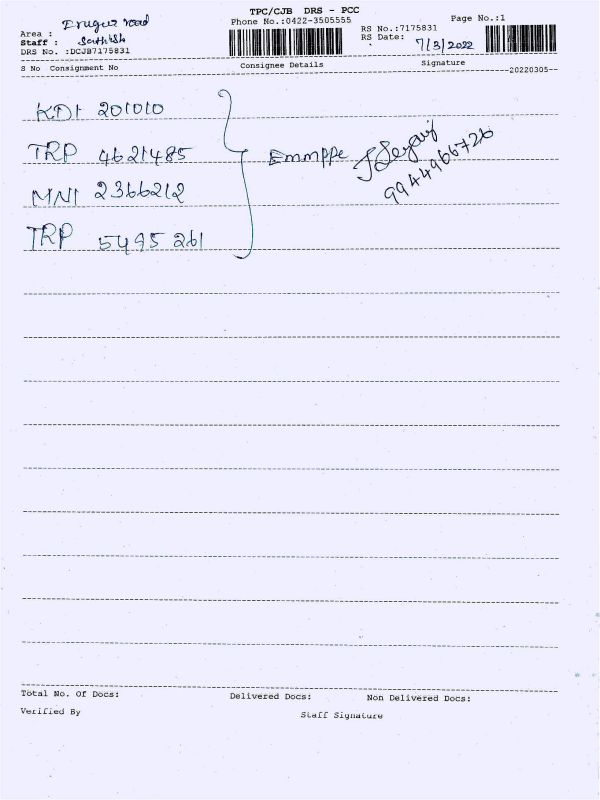 TPC/CJB DRS - PCC
Phone No.:0422-3505555
Page No.:1
Area : Irugur road
RS No.:7175831
Staff : Sathish
RS Date: 7/3/2022
DRS No. :DCJB7175831
S No Consignment No Consignee Details Signature
20220305
KDI 201010
TRP 4621485 Emmppe
9944966726
MNI 2366212
TRP 5495261
Total No. Of Docs: Delivered Docs: Non Delivered Docs:
Verified By Staff Signature